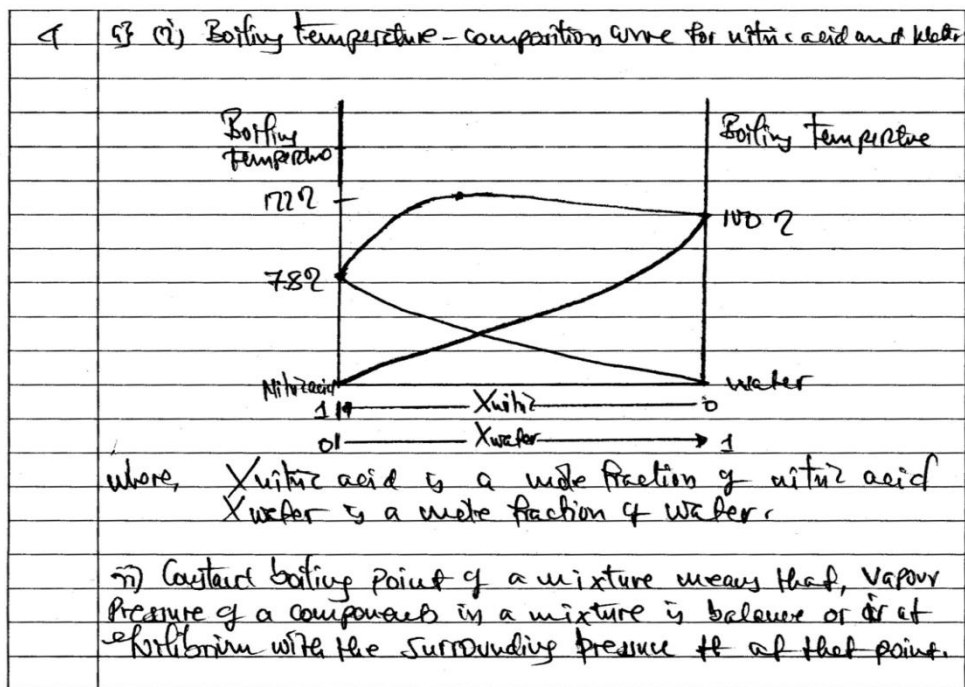 4
(i) Boiling temperature - composition curve for nitric acid and water
Boiling
temperature
Boiling temperature
122
100
78
Nitric acid
water
1 Xnitric 0
0 Xwater 1
where, Xnitric acid is a mole fraction of nitric acid
Xwater is a mole fraction of water.
ii) Constant boiling point of a mixture means that, vapour
pressure of a components in a mixture is balance or is at
equilibrium with the surrounding pressure at that point.